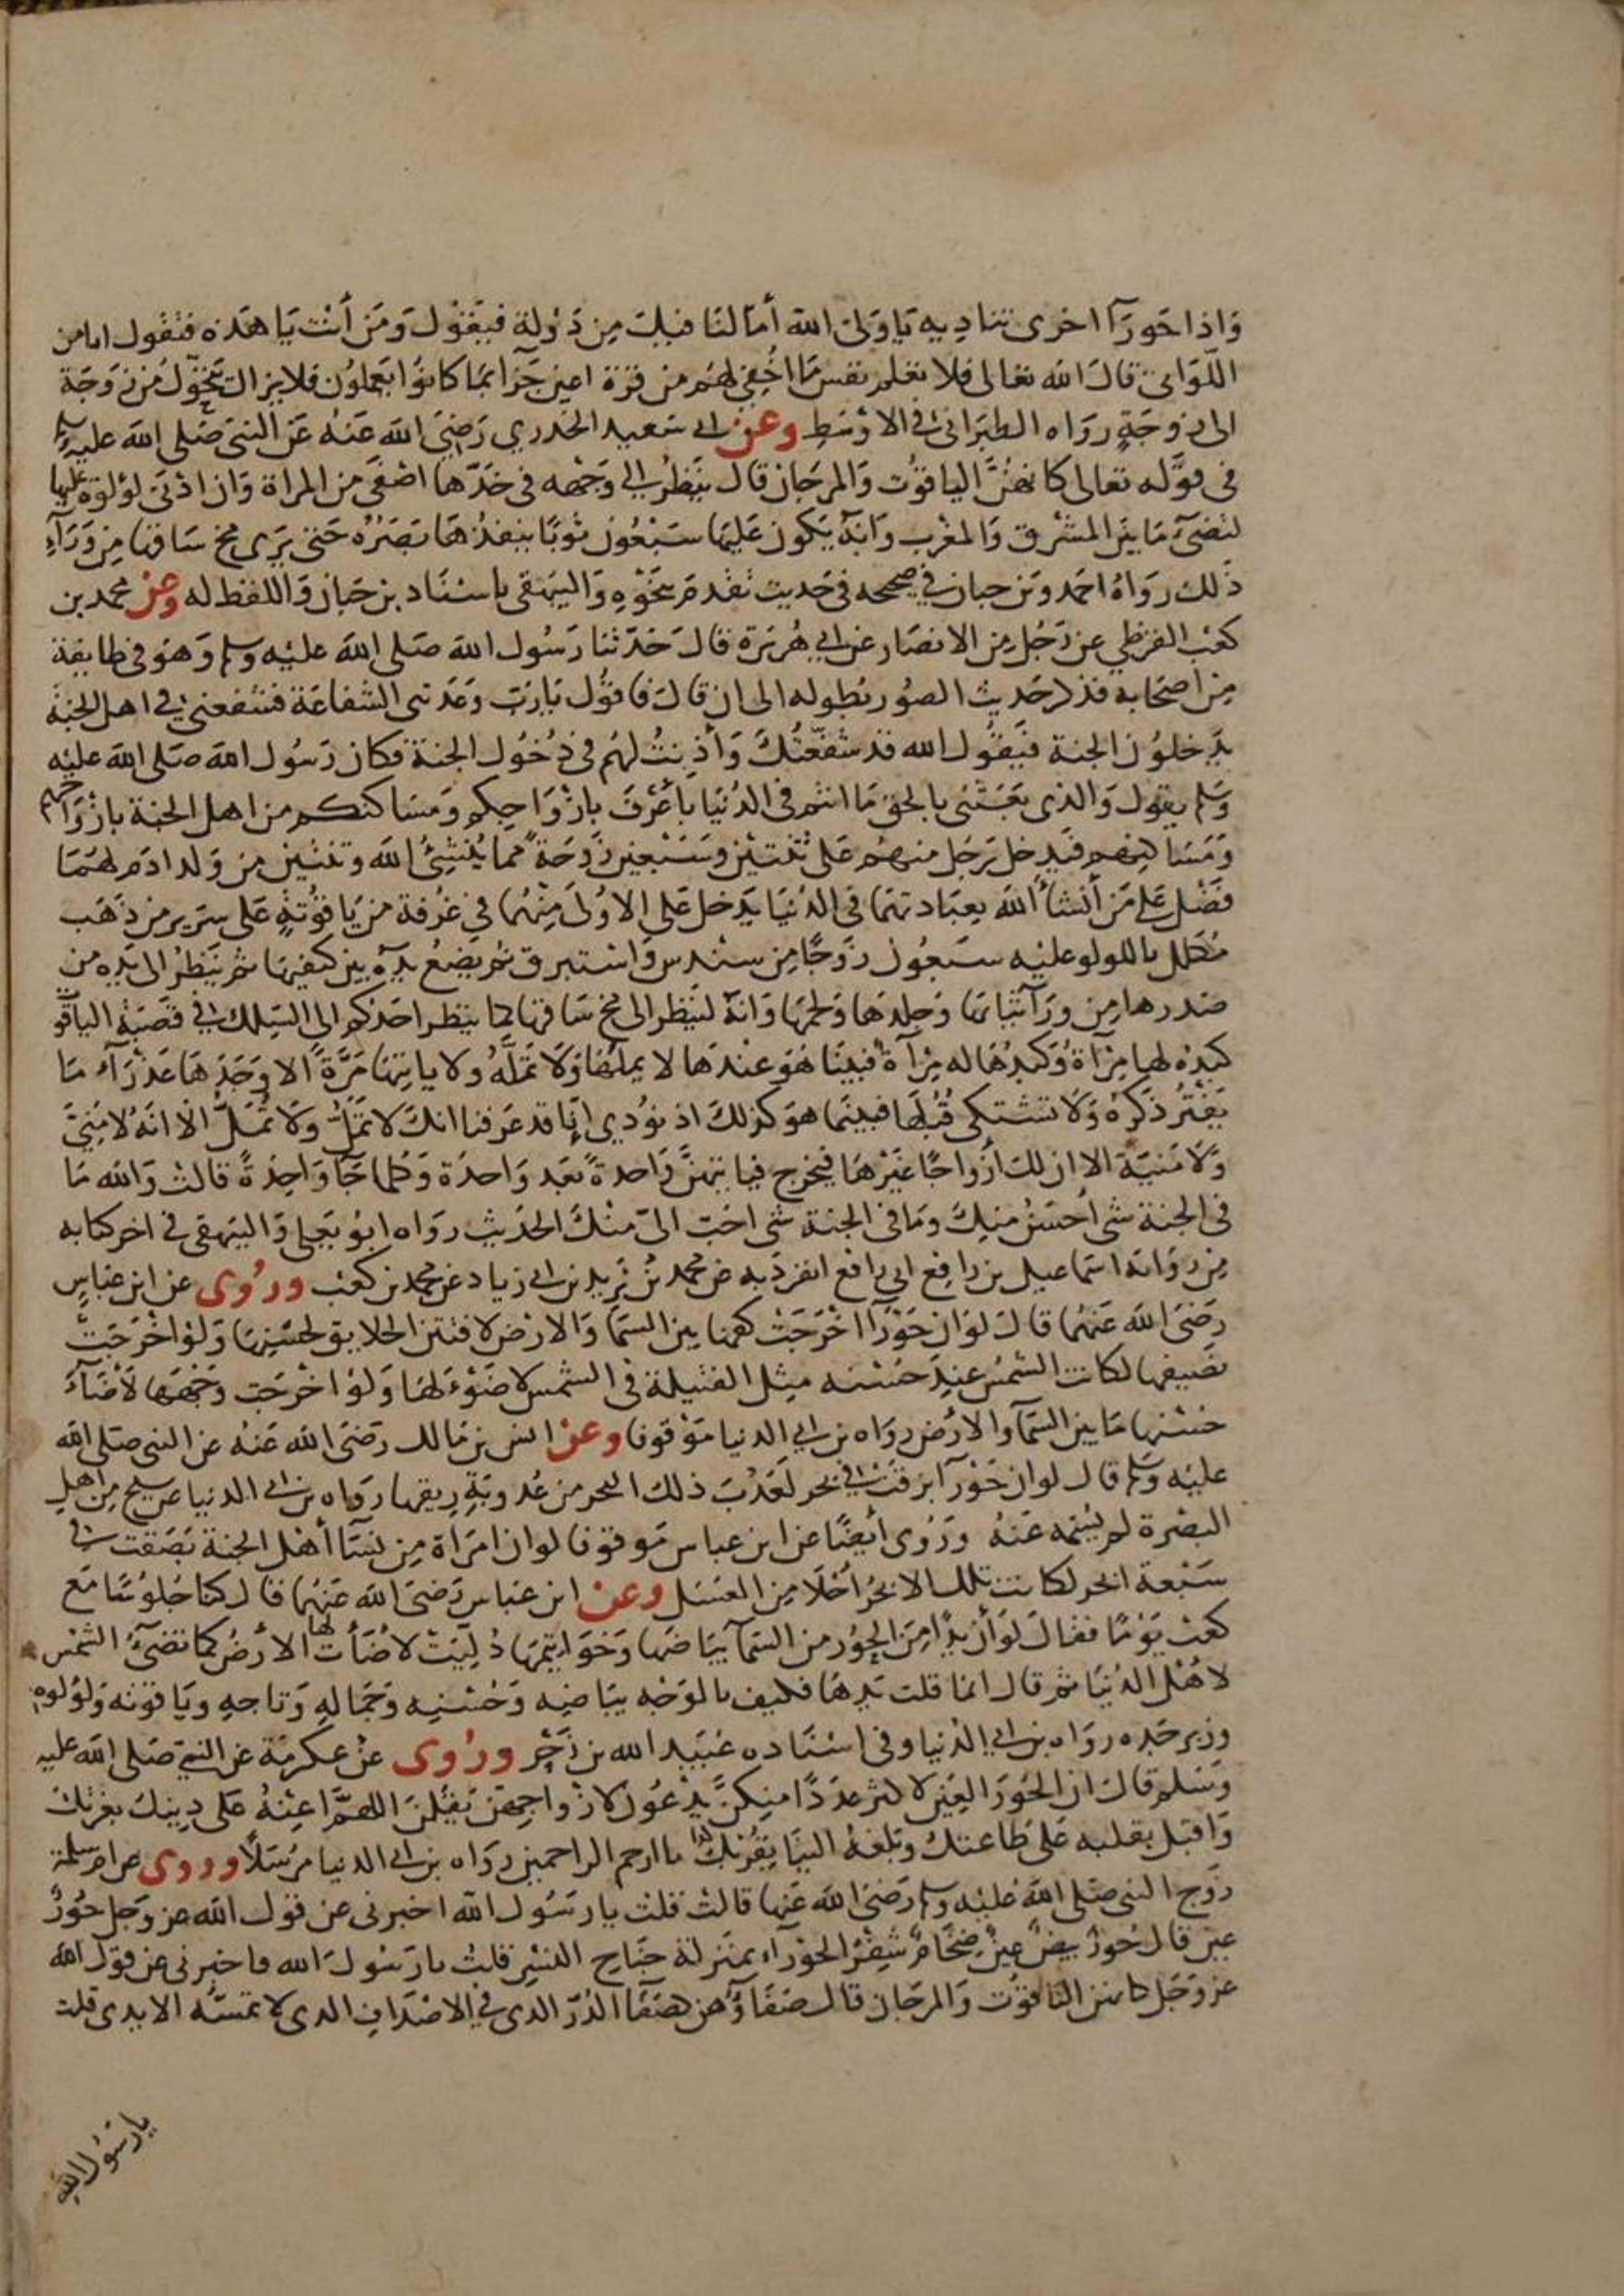 واذا حورآ اخرى تناديه يا ولى الله أما لنا فيك من دولة فيقول ومن أنت يا هذه فتقول انا من
اللواتى قال الله تعالى فلا تعلم نفس ما اخفى لهم من قرة اعين جزآ بما كانوا يعملون فلا يزال يتحول من زوجة
الى زوجة رواه الطبرانى فى الاوسط وعن ابى سعيد الخدري رضى الله عنه عن النبى صلى الله عليه وسلم
فى قوله تعالى كانهن الياقوت والمرجان قال ينظر الى وجهه فى خدها اصفى من المراة وان ادنى لؤلؤة عليها
لتضىء ما بين المشرق والمغرب وانه يكون عليها سبعون ثوبا ينفذها بصره حتى يرى مخ ساقها من ورآء
ذلك رواه احمد وبن حبان في صحيحه فى حديث تقدم بنحوه والبيهقى باسناد بن حبان واللفظ له وعن محمد بن
كعب القرظي عن رجل من الانصار عن ابي هريرة قال حدثنا رسول الله صلى الله عليه وسلم وهو فى طايفة
من اصحابه فذكر حديث الصور بطوله الى ان قال فاقول يا رب وعدتنى الشفاعة فشفعنى فى اهل الجنة
يدخلون الجنة فيقول الله قد شفعتك وأذنت لهم فى دخول الجنة فكان رسول الله صلى الله عليه
وسلم يقول والذى بعثنى بالحق ما انتم فى الدنيا بأعرف بازواجكم ومساكنكم من اهل الجنة بازواجهم
ومساكنهم فيدخل رجل منهم على ثنتين وسبعين زوجة مما ينشئ الله وثنتين من ولد ادم لهما
فضل على من أنشأ الله بعبادتهما فى الدنيا يدخل على الاولى منهما في غرفة من ياقوتة على سرير من ذهب
مكلل باللولو عليه سبعون زوجا من سندس واستبرق ثم يضع يده بين كتفيها ثم ينظر الى يده من
صدرها من ورآ ثيابها وجلدها ولحمها وانه لينظر الى مخ ساقها كما ينظر احدكم الى السلك فى قصبة الياقو
كبده لها مرآة وكبدها له مرآة فبينا هو عندها لا يملها ولا تمله ولا ياتيها مرة الا وجدها عذرآء ما
يفتر ذكره ولا تشتكى قبلها فبينما هو كذلك اذ نودي انا قد عرفنا انك لا تمل ولا تمل الا انه لا منى
ولا منية الا ان لك أزواجا غيرها فيخرج فياتيهن واحدة بعد واحدة وكلما جآ واحدة قالت والله ما
فى الجنة شى أحسن منك وما فى الجنة شى احب الى منك الحديث رواه ابو يعلى والبيهقى فى اخر كتابه
من رواية اسماعيل بن رافع ابى رافع انفرد به عن محمد بن يزيد بن ابى زياد عن محمد بن كعب وروى عن ابن عباس
رضى الله عنهما قال لو ان حورآ اخرجت كفها بين السما والارض لافتتن الخلايق لحسنها ولو اخرجت
نصيفها لكانت الشمس عند حسنه مثل الفتيلة فى الشمس لا ضوء لها ولو اخرجت وجهها لأضآء
حسنها ما بين السمآ والارض رواه بن ابي الدنيا موقوفا وعن انس بن مالك رضى الله عنه عن النبى صلى الله
عليه وسلم قال لو ان حورآ بزقت فى بحر لعذب ذلك البحر من عذوبة ريقها رواه بن ابى الدنيا عن شيخ من اهل
البصرة لم يسمه عنه وروى أيضا عن ابن عباس موقوفا لو ان امراة من نسآ أهل الجنة بصقت فى
سبعة ابحر لكانت تلك الابحر أحلا من العسل وعن ابن عباس رضى الله عنهما قال كنا جلوسا مع
كعب يوما فقال لو أن يدا من الحور من السمآ بياضها وخواتيمها دليت لاضأت لها الأرض كما تضىء الشمس
لاهل الدنيا ثم قال انما قلت يدها فكيف بالوجه بياضه وحسنه وجماله وتاجه وياقوته ولؤلوه
وزبرجده رواه بن ابي الدنيا وفى اسناده عبيد الله بن زحر وروى عن عكرمة عن النبي صلى الله عليه
وسلم قال ان الحور العين لاكثر عددا منكن يدعون لازواجهن يقلن اللهم اعنه على دينك بعزتك
واقبل بقلبه على طاعتك وبلغه الينا بقربك يا ارحم الراحمين رواه بن ابى الدنيا مرسلا وروى عن ام سلمة
زوج النبى صلى الله عليه وسلم رضى الله عنها قالت قلت يا رسول الله اخبرنى عن قول الله عز وجل حور
عين قال حور بيض عين ضخام شفر الحورآء بمنزلة جناح النسر قلت يا رسول الله فاخبرنى عن قول الله
عز وجل كانهن الياقوت والمرجان قال صفاؤهن كصفآ الدر الذى فى الاصداف الذى لا تمسه الايدى قلت
يا رسول الله